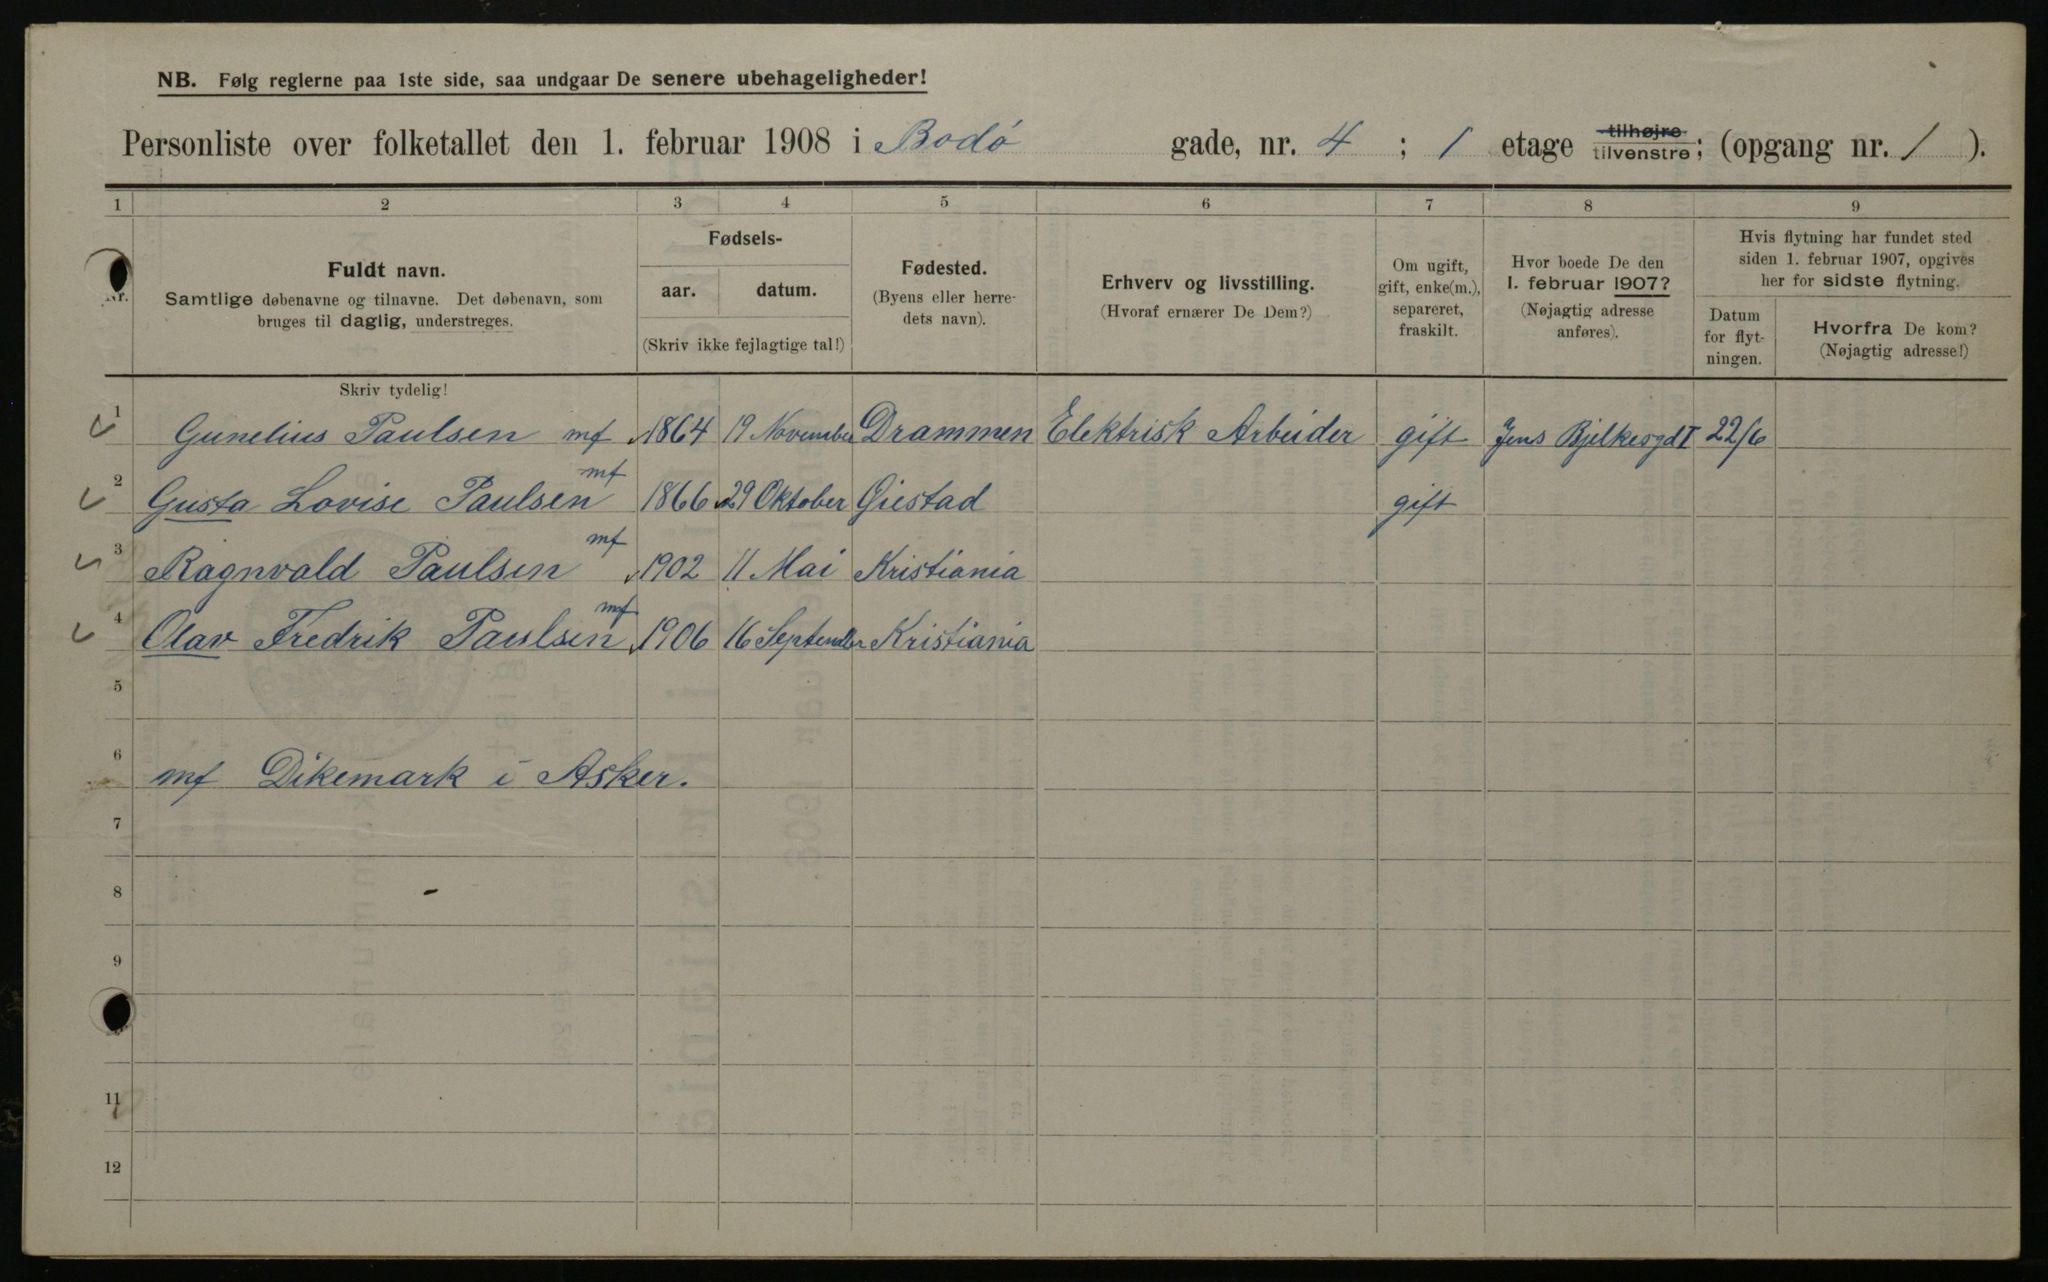 NB. Følg reglerne paa 1ste side, saa undgaar De senere ubehageligheder!
Personliste over folketallet den 1. februar 1908 i Bodø gade, nr. 4 ; 1 etage tilhøjre tilvenstre; (opgang nr. 1 ).
1 2 3 4 5 6 7 8 9
Nr.
Fuldt navn.
Samtlige døbenavne og tilnavne. Det døbenavn, som
bruges til daglig, understreges.
Fødsels-
aar. datum.
(Skriv ikke fejlagtige tal!)
Fødested.
(Byens eller herre-
dets navn).
Erhverv og livsstilling.
(Hvoraf ernærer De Dem?)
Om ugift,
gift, enke(m.),
separeret,
fraskilt.
Hvor boede De den
1. februar 1907?
(Nøjagtig adresse
anføres).
Hvis flytning har fundet sted
siden 1. februar 1907, opgives
her for sidste flytning.
Datum
for flyt-
ningen.
Hvorfra De kom?
(Nøjagtig adresse!)
Skriv tydelig!
1 Gunelius Paulsen mf 1864 19 November Drammen Elektrisk Arbeider gift Jens Bjelkesgd I 22/6
2 Gusta Lovise Paulsen mf 1866 29 Oktober Giestad gift
3 Ragnvald Paulsen mf 1902 11 Mai Kristiania
4 Olav Fredrik Paulsen mf 1906 16 September Kristiania
5
6 mf Dikemark i Asker.
7
8
9
11
12